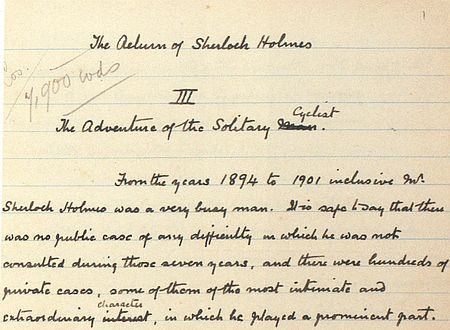 1
The Return of Sherlock Holmes
7,900 wds
III
Cyclist
The Adventure of the Solitary Man.
From the years 1894 to 1901 inclusive Mr
Sherlock Holmes was a very busy man. It is safe to say that there
was no public case of any difficulty in which he was not
consulted during those seven years, and there were hundreds of
private cases, some of them of the most intimate and
character
extraordinary interest, in which he played a prominent part.